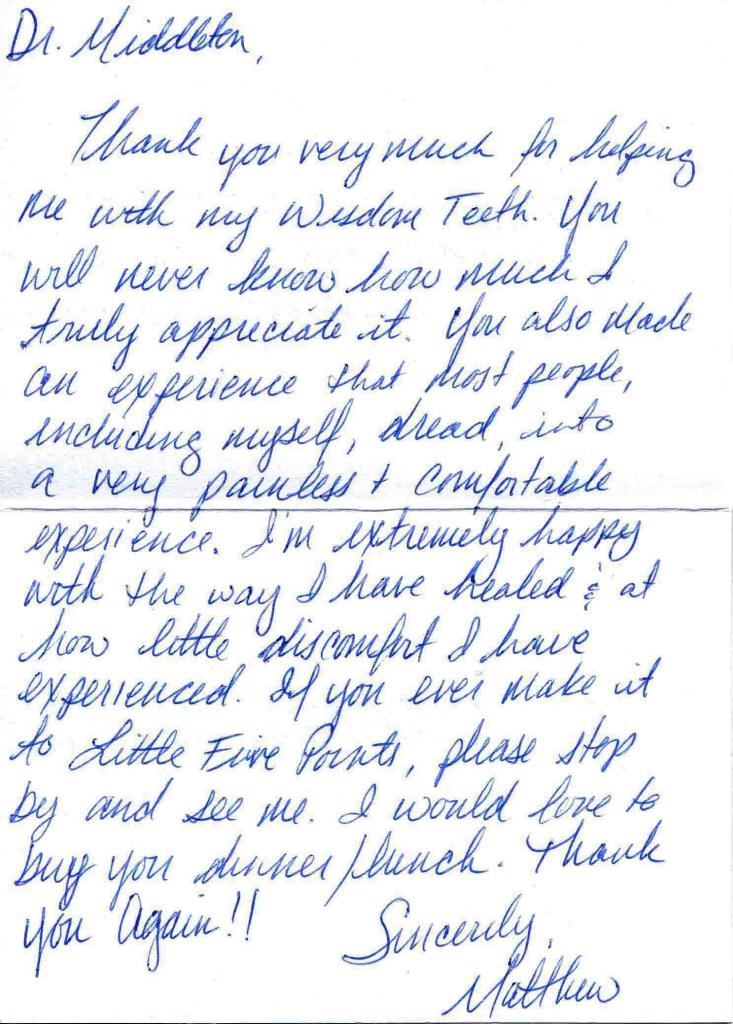 Dr. Middleton,
Thank you very much for helping
me with my Wisdom Teeth. You
will never know how much I
truly appreciate it. You also made
an experience that most people,
including myself, dread, into
a very painless + comfortable
experience. I'm extremely happy
with the way I have healed & at
how little discomfort I have
experienced. If you ever make it
to Little Five Points, please stop
by and see me. I would love to
buy you dinner/lunch. Thank
you Again!!
Sincerely,
Matthew